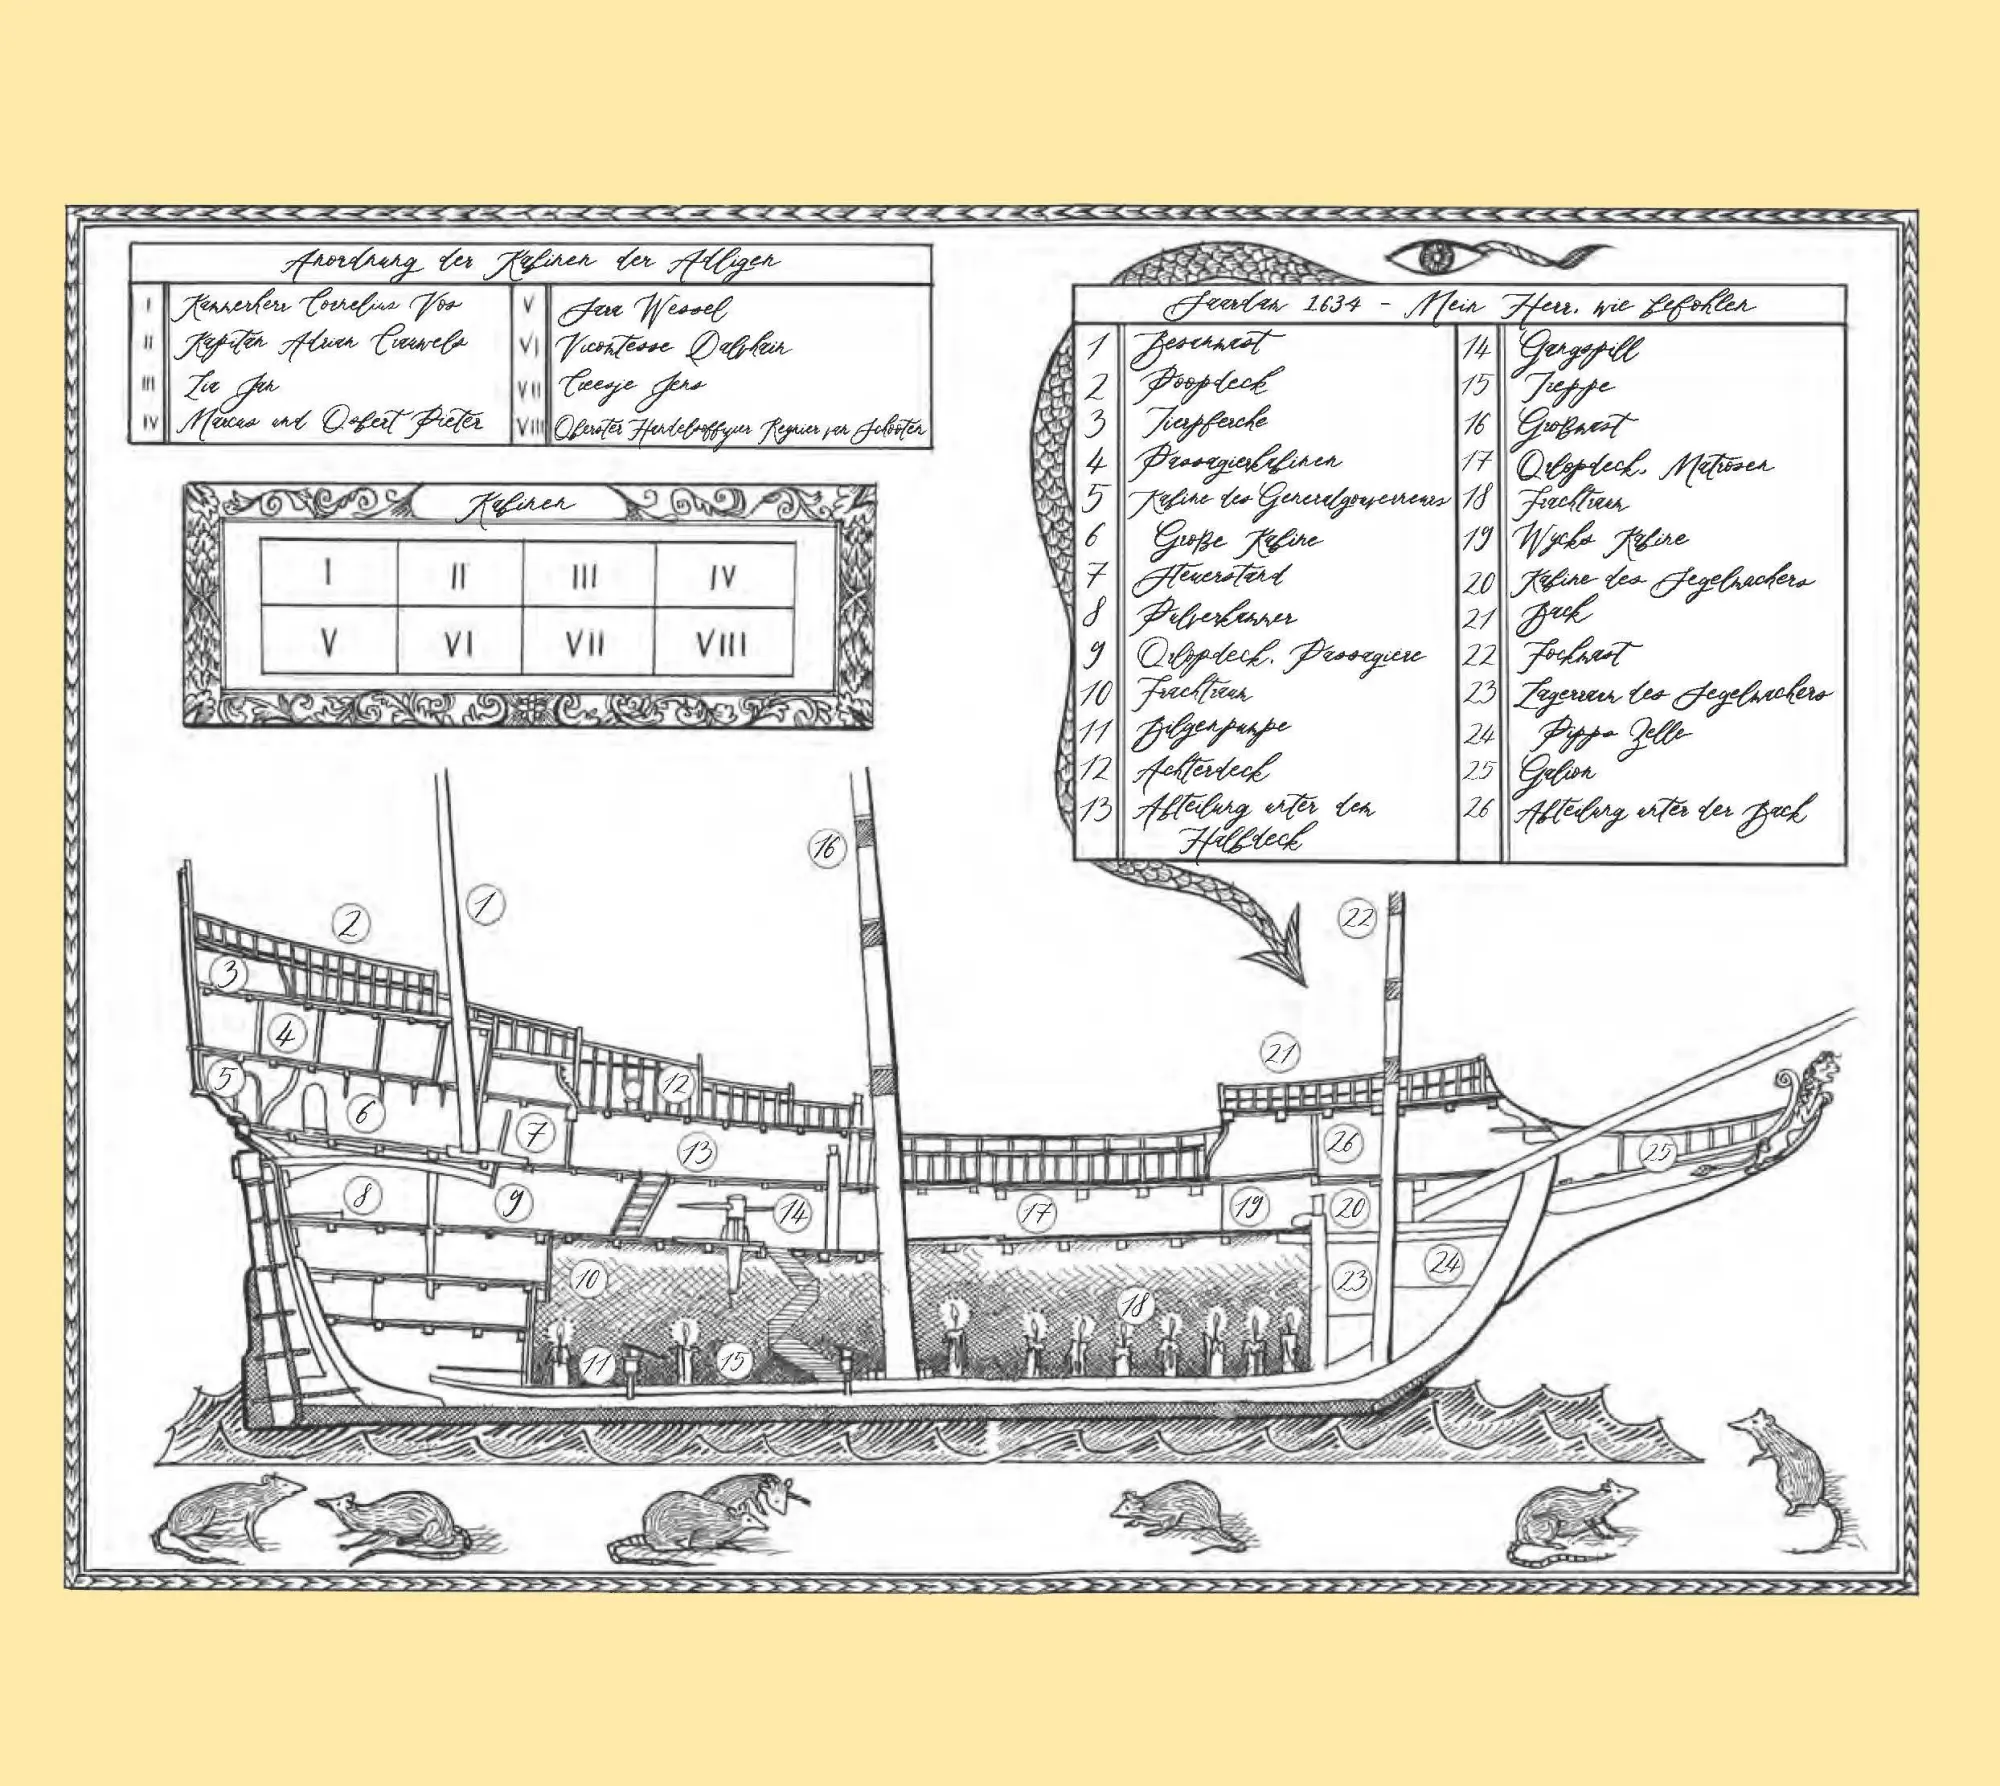 Anordnung der Kabinen der Adligen
I Kammerherr Cornelius Vos
II Kapitän Adrian Crauwels
III Lia Jan
IV Marcus und Osbert Pieter
V Sara Wessel
VI Vicomtesse Dalvhain
VII Creesje Jens
VIII Oberster Handelsoffizier Reynier van Schooten
Kabinen
I II III IV
V VI VII VIII
Saardam 1634 - Mein Herr, wie befohlen
1 Besanmast
2 Poopdeck
3 Tierpferche
4 Passagierkabinen
5 Kabine des Generalgouverneurs
6 Große Kabine
7 Steuerstand
8 Pulverkammer
9 Orlopdeck, Passagiere
10 Frachtraum
11 Bilgenpumpe
12 Achterdeck
13 Abteilung unter dem
Halbdeck
14 Gangspill
15 Treppe
16 Großmast
17 Orlopdeck, Matrosen
18 Frachtraum
19 Wycks Kabine
20 Kabine des Segelmachers
21 Back
22 Fockmast
23 Lagerraum des Segelmachers
24 Pipps Zelle
25 Galion
26 Abteilung unter der Back
16
1
2
22
3
4
21
5
12
6
7
13
26
25
8
9
14
17
19
20
10
18
23
24
11
15